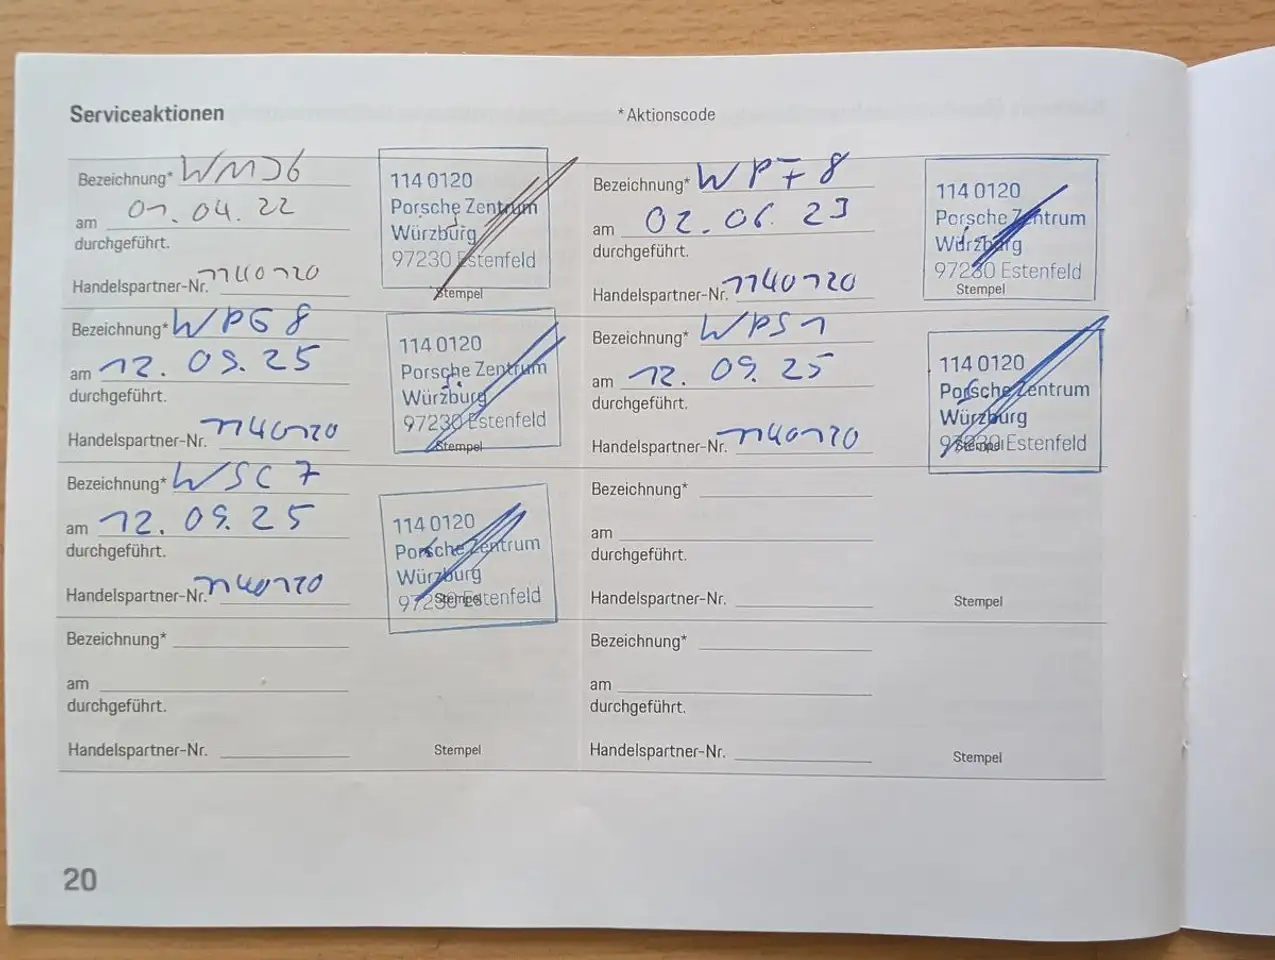 Serviceaktionen
*Aktionscode
Bezeichnung* WMJ6
am 01.04.22
durchgeführt.
Handelspartner-Nr. 1140120
114 0120
Porsche Zentrum
Würzburg
97230 Estenfeld
Stempel
Bezeichnung* WPF8
am 02.06.23
durchgeführt.
Handelspartner-Nr. 1140120
114 0120
Porsche Zentrum
Würzburg
97230 Estenfeld
Stempel
Bezeichnung* WPG8
am 12.09.25
durchgeführt.
Handelspartner-Nr. 1140120
114 0120
Porsche Zentrum
Würzburg
97230 Estenfeld
Stempel
Bezeichnung* WPS1
am 12.09.25
durchgeführt.
Handelspartner-Nr. 1140120
114 0120
Porsche Zentrum
Würzburg
97230 Estenfeld
Stempel
Bezeichnung* WSC7
am 12.09.25
durchgeführt.
Handelspartner-Nr. 1140120
114 0120
Porsche Zentrum
Würzburg
97230 Estenfeld
Stempel
Bezeichnung*
am
durchgeführt.
Handelspartner-Nr.
Stempel
Bezeichnung*
am
durchgeführt.
Handelspartner-Nr.
Stempel
Bezeichnung*
am
durchgeführt.
Handelspartner-Nr.
Stempel
20